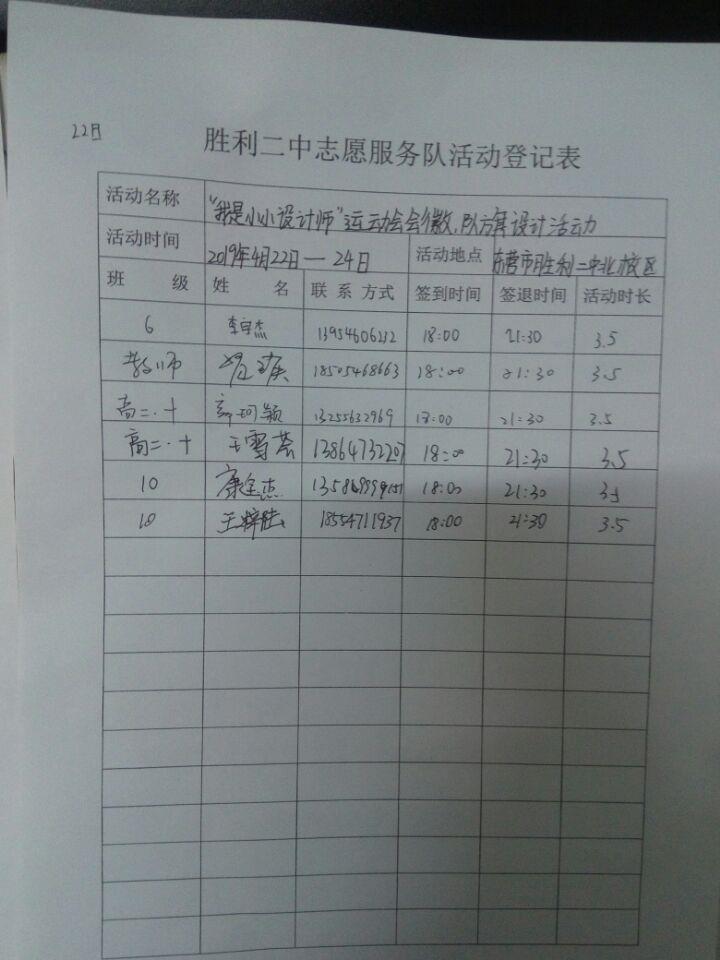 22日
胜利二中志愿服务队活动登记表
活动名称 "我是小小设计师"运动会会徽,队旗设计活动
活动时间 2019年4月22日—24日 活动地点 东营市胜利二中北校区
班 级 姓 名 联 系 方式 签到时间 签退时间 活动时长
6 杰 13954606232 18:00 21:30 3.5
教师 18505468663 18:00 21:30 3.5
高二.十 郭珂颖 13255632969 18:00 21:30 3.5
高二.十 王雪芸 13864732207 18:00 21:30 3.5
10 康全杰 18:00 21:30 3.5
10 王梓陆 18554711937 18:00 21:30 3.5